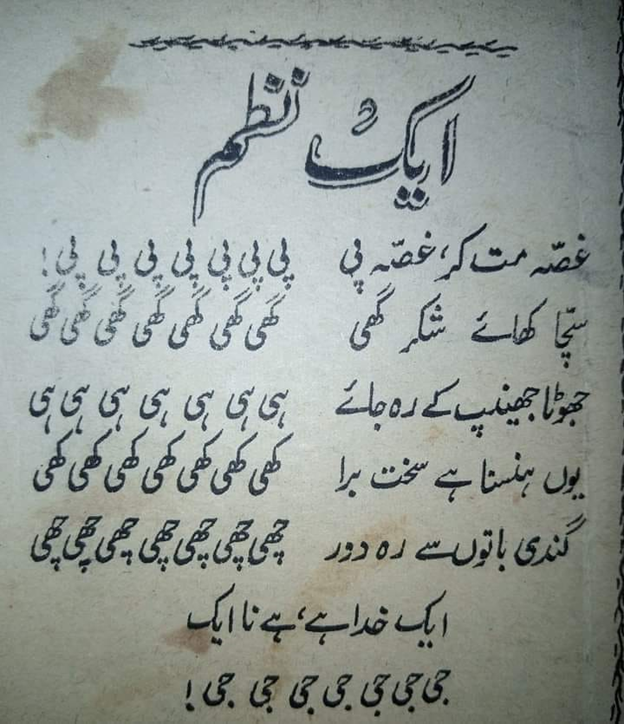 ایک نظم
غصّہ مت کر، غصّہ پی پی پی پی پی پی پی پی!
سچّا کھائے شکر گھی گھی گھی گھی گھی گھی گھی گھی
جھوٹا جھینپ کے رہ جائے ہی ہی ہی ہی ہی ہی ہی
یوں ہنسنا ہے سخت برا کھی کھی کھی کھی کھی کھی کھی
گندی باتوں سے رہ دور چھی چھی چھی چھی چھی چھی چھی
ایک خدا ہے، ہے نا ایک
جی جی جی جی جی جی جی!